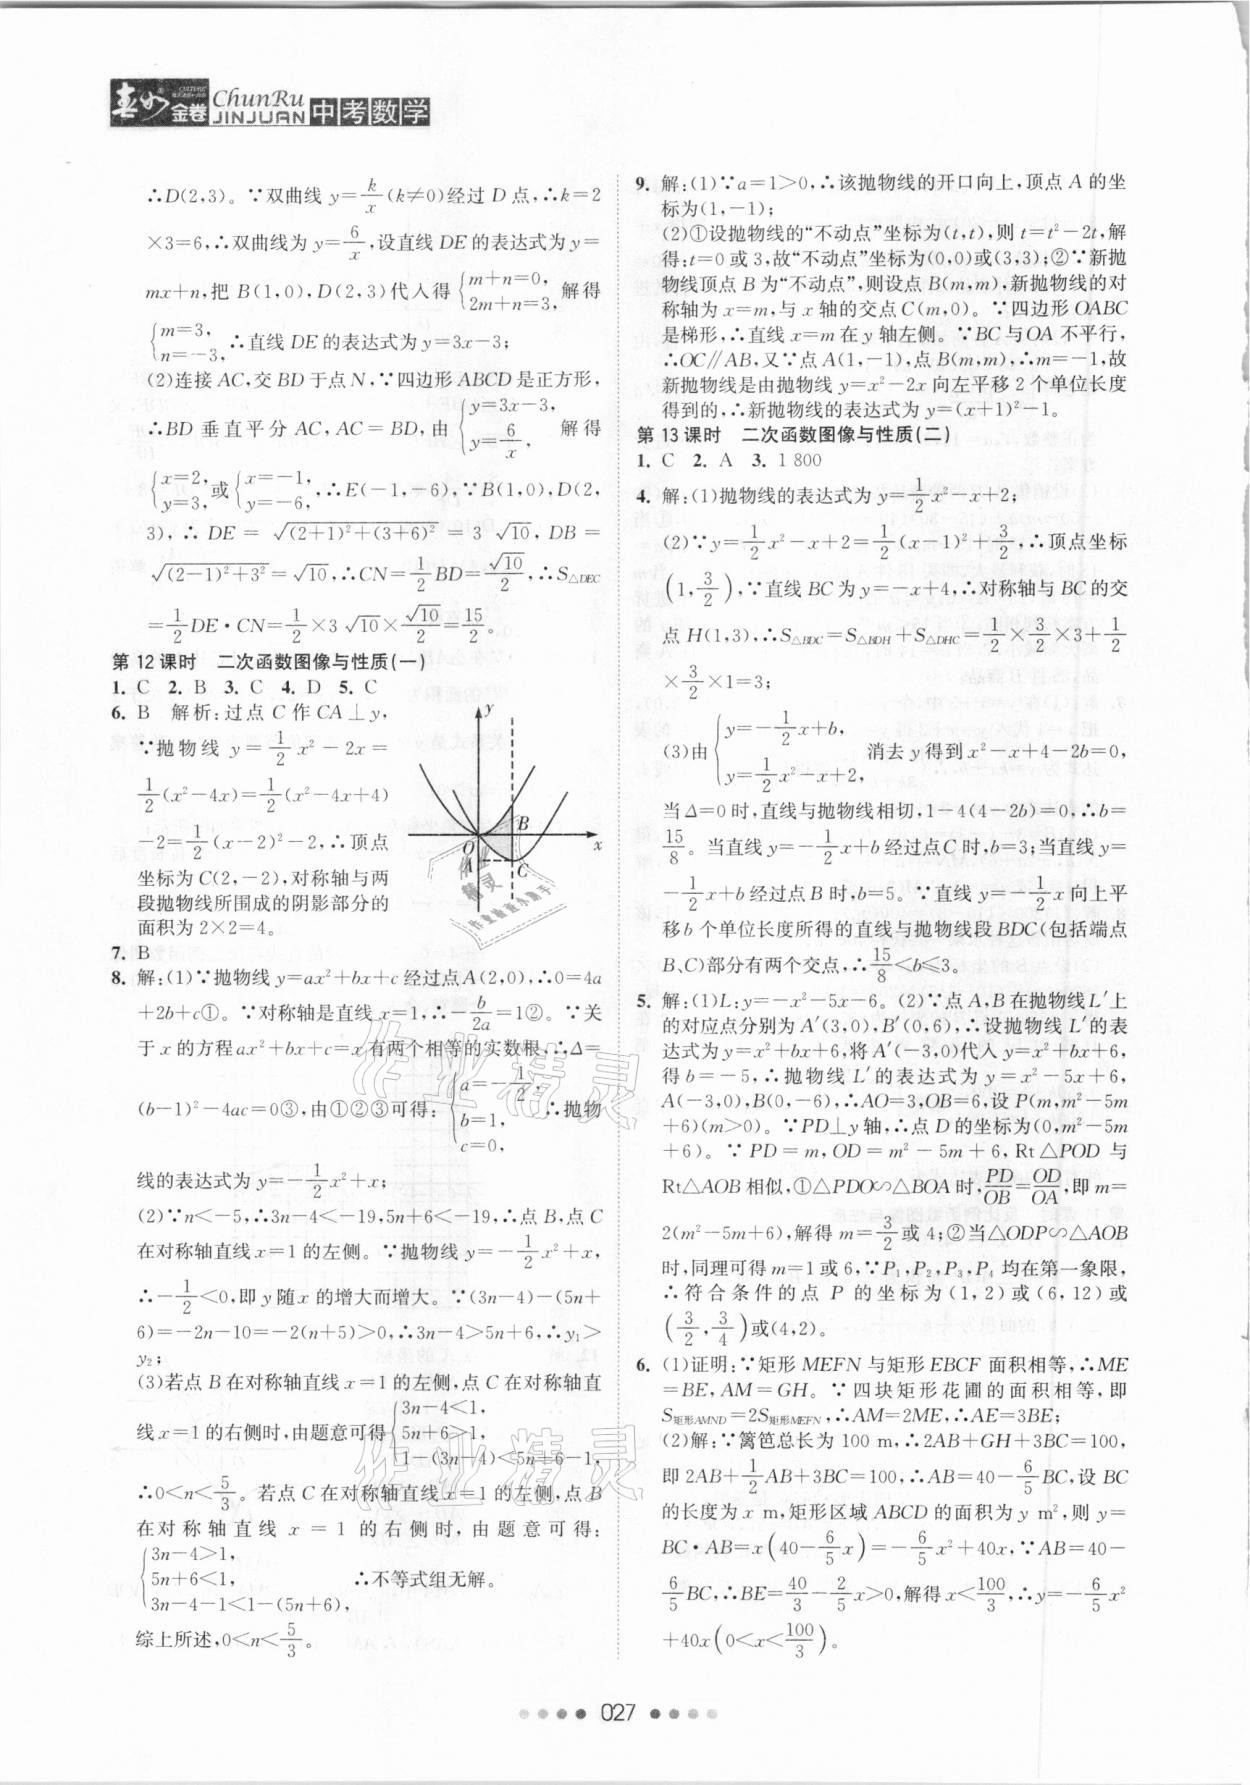 春如金卷 ChunRu JINJUAN 中考数学
∴D(2,3)。∵双曲线 y=k/x(k≠0)经过 D 点,∴k=2
×3=6,∴双曲线为 y=6/x,设直线 DE 的表达式为 y=
mx+n,把 B(1,0),D(2,3)代入得{m+n=0, 2m+n=3, 解得
{m=3, n=-3, ∴直线 DE 的表达式为 y=3x-3;
(2)连接 AC,交 BD 于点 N,∵四边形 ABCD 是正方形,
∴BD 垂直平分 AC,AC=BD,由{y=3x-3, y=6/x, 解得
{x=2, y=3, 或{x=-1, y=-6, ∴E(-1,-6),∵B(1,0),D(2,
3),∴DE=√((2+1)²+(3+6)²)=3√10,DB=
√((2-1)²+3²)=√10,∴CN=1/2BD=√10/2,∴S△DEC
=1/2DE·CN=1/2×3√10×√10/2=15/2。
第 12 课时 二次函数图像与性质(一)
1. C 2. B 3. C 4. D 5. C
6. B 解析:过点 C 作 CA⊥y,
∵抛物线 y=1/2x²-2x=
1/2(x²-4x)=1/2(x²-4x+4)
-2=1/2(x-2)²-2,∴顶点
坐标为 C(2,-2),对称轴与两
段抛物线所围成的阴影部分的
面积为 2×2=4。
y
B
O
x
A
C
7. B
8. 解:(1)∵抛物线 y=ax²+bx+c 经过点 A(2,0),∴0=4a
+2b+c①。∵对称轴是直线 x=1,∴-b/2a=1②。∵关
于 x 的方程 ax²+bx+c=x 有两个相等的实数根,∴Δ=
(b-1)²-4ac=0③,由①②③可得:{a=-1/2, b=1, c=0, ∴抛物
线的表达式为 y=-1/2x²+x;
(2)∵n<-5,∴3n-4<-19,5n+6<-19,∴点 B,点 C
在对称轴直线 x=1 的左侧。∵抛物线 y=-1/2x²+x,
∴-1/2<0,即 y 随 x 的增大而增大。∵(3n-4)-(5n+
6)=-2n-10=-2(n+5)>0,∴3n-4>5n+6,∴y₁>
y₂;
(3)若点 B 在对称轴直线 x=1 的左侧,点 C 在对称轴直
线 x=1 的右侧时,由题意可得{3n-4<1, 5n+6>1, 1-(3n-4)<5n+6-1,
∴0<n<5/3。若点 C 在对称轴直线 x=1 的左侧,点 B
在对称轴直线 x=1 的右侧时,由题意可得:
{3n-4>1, 5n+6<1, 3n-4-1<1-(5n+6), ∴不等式组无解。
综上所述,0<n<5/3。
9. 解:(1)∵a=1>0,∴该抛物线的开口向上,顶点 A 的坐
标为(1,-1);
(2)①设抛物线的“不动点”坐标为(t,t),则 t=t²-2t,解
得:t=0 或 3,故“不动点”坐标为(0,0)或(3,3);②∵新抛
物线顶点 B 为“不动点”,则设点 B(m,m),新抛物线的对
称轴为 x=m,与 x 轴的交点 C(m,0)。∵四边形 OABC
是梯形,∴直线 x=m 在 y 轴左侧。∵BC 与 OA 不平行,
∴OC∥AB,又∵点 A(1,-1),点 B(m,m),∴m=-1,故
新抛物线是由抛物线 y=x²-2x 向左平移 2 个单位长度
得到的,∴新抛物线的表达式为 y=(x+1)²-1。
第 13 课时 二次函数图像与性质(二)
1. C 2. A 3. 1 800
4. 解:(1)抛物线的表达式为 y=1/2x²-x+2;
(2)∵y=1/2x²-x+2=1/2(x-1)²+3/2,∴顶点坐标
(1,3/2),∵直线 BC 为 y=-x+4,∴对称轴与 BC 的交
点 H(1,3),∴S△BDC=S△BDH+S△DHC=1/2×3/2×3+1/2
×3/2×1=3;
(3)由{y=-1/2x+b, y=1/2x²-x+2, 消去 y 得到 x²-x+4-2b=0,
当Δ=0 时,直线与抛物线相切,1-4(4-2b)=0,∴b=
15/8。当直线 y=-1/2x+b 经过点 C 时,b=3;当直线 y=
-1/2x+b 经过点 B 时,b=5。∵直线 y=-1/2x 向上平
移 b 个单位长度所得的直线与抛物线段 BDC(包括端点
B、C)部分有两个交点,∴15/8<b≤3。
5. 解:(1)L:y=-x²-5x-6。(2)∵点 A,B 在抛物线 L′上
的对应点分别为 A′(3,0),B′(0,6),∴设抛物线 L′的表
达式为 y=x²+bx+6,将 A′(-3,0)代入 y=x²+bx+6,
得 b=-5,∴抛物线 L′的表达式为 y=x²-5x+6,
A(-3,0),B(0,-6),∴AO=3,OB=6,设 P(m,m²-5m
+6)(m>0)。∵PD⊥y 轴,∴点 D 的坐标为(0,m²-5m
+6)。∵PD=m,OD=m²-5m+6,Rt△POD 与
Rt△AOB 相似,①△PDO∽△BOA 时,PD/OB=OD/OA,即 m=
2(m²-5m+6),解得 m=3/2或 4;②当△ODP∽△AOB
时,同理可得 m=1 或 6,∵P₁,P₂,P₃,P₄均在第一象限,
∴符合条件的点 P 的坐标为(1,2)或(6,12)或
(3/2,3/4)或(4,2)。
6. (1)证明:∵矩形 MEFN 与矩形 EBCF 面积相等,∴ME
=BE,AM=GH。∵四块矩形花圃的面积相等,即
S矩形AMND=2S矩形MEFN,∴AM=2ME,∴AE=3BE;
(2)解:∵篱笆总长为 100 m,∴2AB+GH+3BC=100,
即 2AB+1/2AB+3BC=100,∴AB=40-6/5BC,设 BC
的长度为 x m,矩形区域 ABCD 的面积为 y m²,则 y=
BC·AB=x(40-6/5x)=-6/5x²+40x,∵AB=40-
6/5BC,∴BE=40/3-2/5x>0,解得 x<100/3,∴y=-6/5x²
+40x(0<x<100/3)。
027
作业精灵
作业精灵